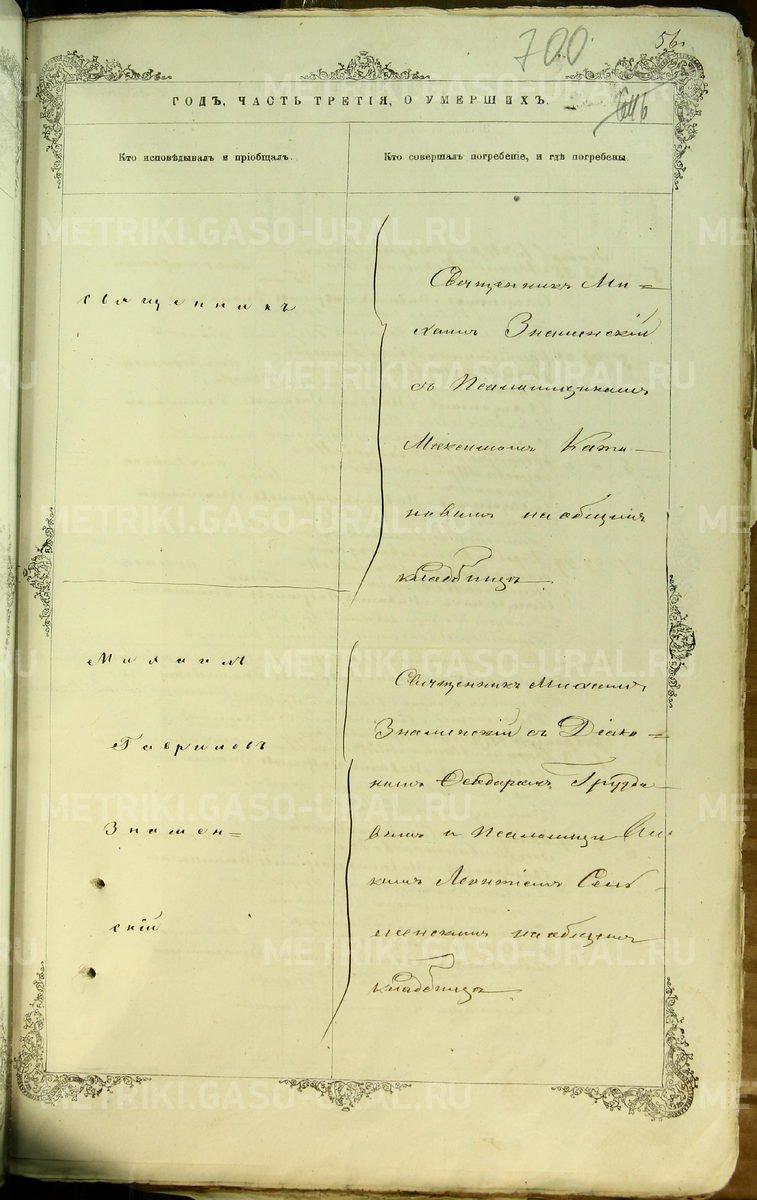 700
56
ГОДЪ, ЧАСТЬ ТРЕТІЯ, О УМЕРШИХЪ.
Кто исповѣдывалъ и пріобщалъ.
Кто совершалъ погребеніе, и гдѣ погребены.
священникъ
Священникъ Ми=
хаилъ Знаменскій
съ Псаломщикомъ
Максимомъ Ката-
новымъ на общемъ
кладбищѣ
Михаилъ
Гавриловъ
Знамен=
скій
Священникъ Михаилъ
Знаменскій съ Діако=
номъ Ѳеодоромъ Грузде-
вымъ и Псаломщи
комъ Леонтіемъ
на общемъ
кладбищѣ
METRIKI.GASO-URAL.RU